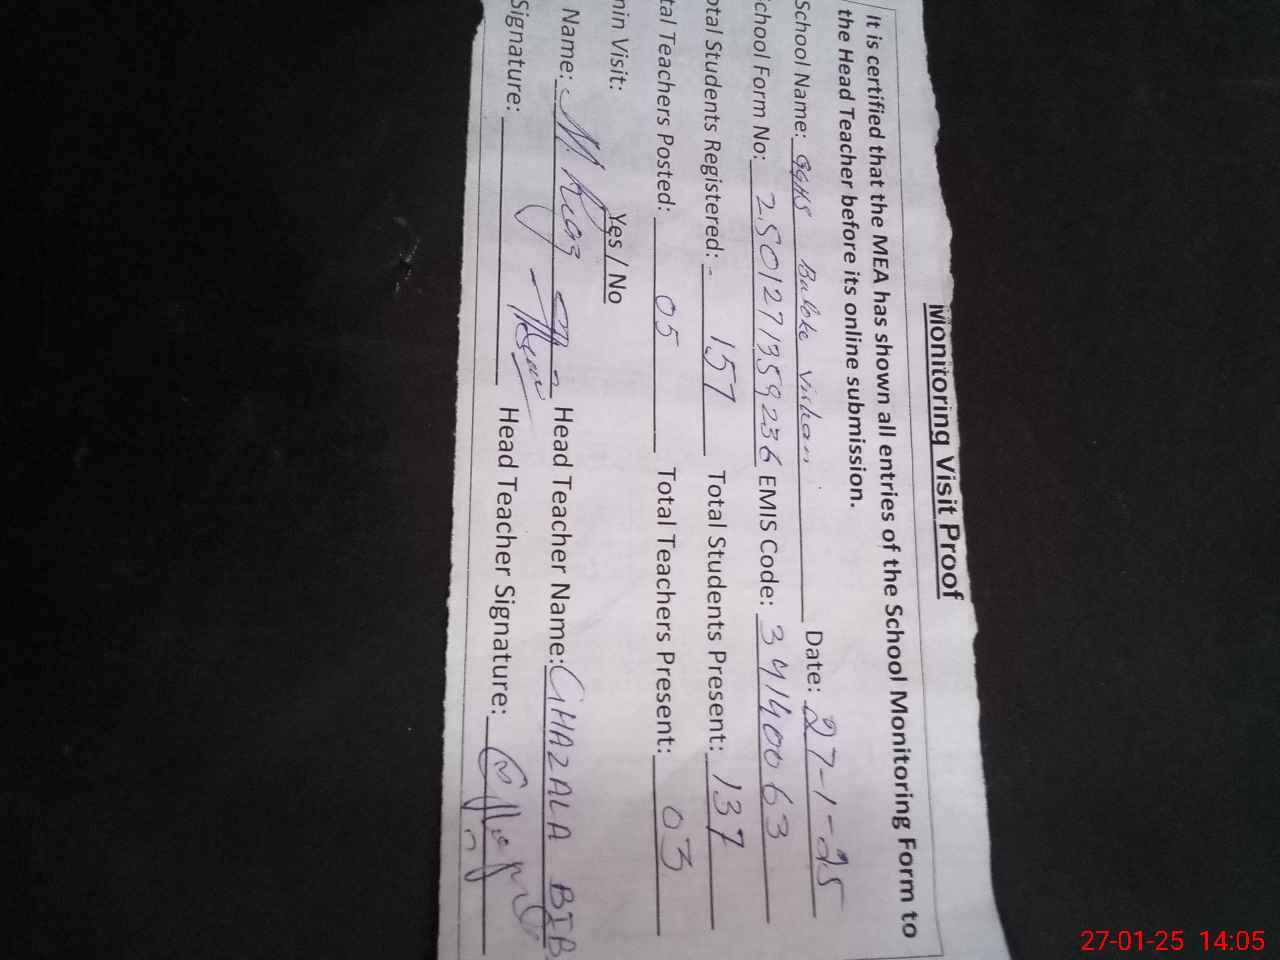 Monitoring Visit Proof
It is certified that the MEA has shown all entries of the School Monitoring Form to
the Head Teacher before its online submission.
School Name: GGHS Baloke Date: 27-1-25
School Form No: 2501271359236 EMIS Code: 34140063
otal Students Registered: 157 Total Students Present: 137
tal Teachers Posted: 05 Total Teachers Present: 03
min Visit: Yes / No
Name: M. Riaz Head Teacher Name: GHAZALA BIB
Signature: Head Teacher Signature:
27-01-25 14:05